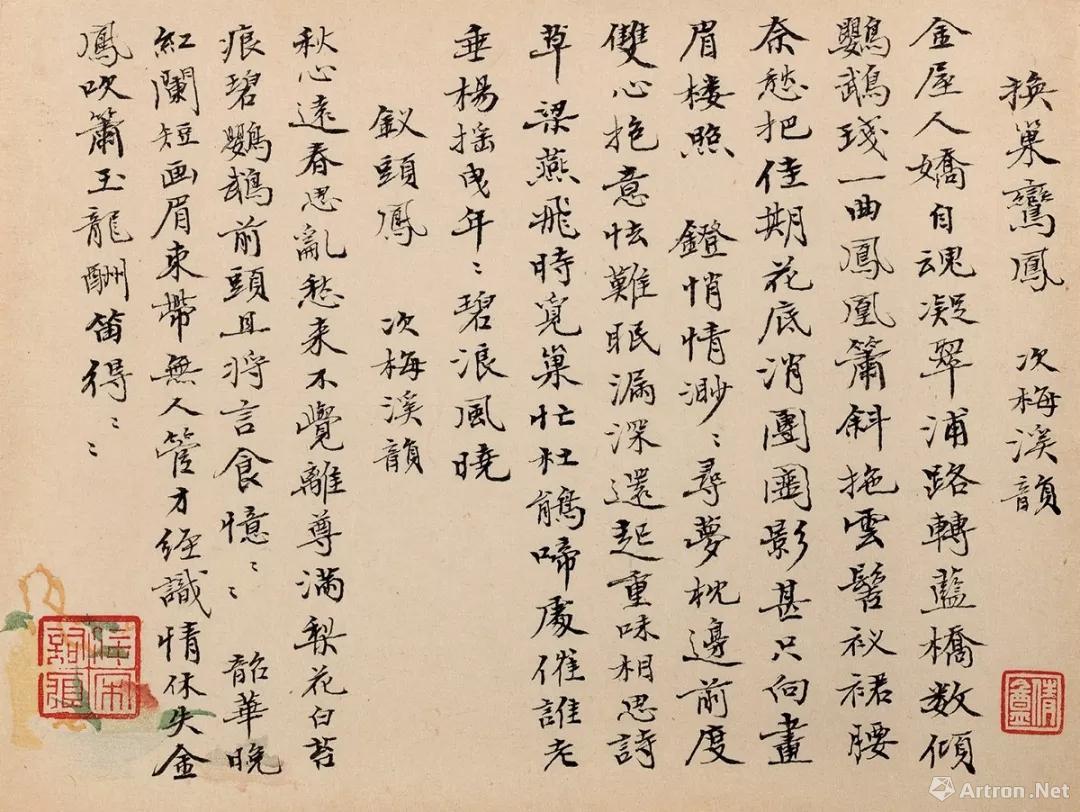 換巢鸞鳳　次梅溪韻
金屋人嬌自魂凝翠浦路轉藍橋数傾
鸚鵡琖一曲鳳凰簫斜拖雲髻衩裙腰
奈愁把佳期花底消團圞影甚只向畫
眉楼照　鐙悄情渺〻尋夢枕邊前度
雙心抱意怯難眠漏深還起重味相思詩
草梁燕飛時寛巢忙杜鵑啼處催誰老
垂楊揺曳年〻碧浪風曉
釵頭鳳　次梅溪韻
秋心遠春思亂愁来不覺離尊滿梨花白苔
痕碧鸚鵡前頭且将言食憶〻〻　韶華晚
紅闌短画眉束帶無人管才経識情休失金
鳳吹簫玉龍酬笛得〻〻
Artron.Net